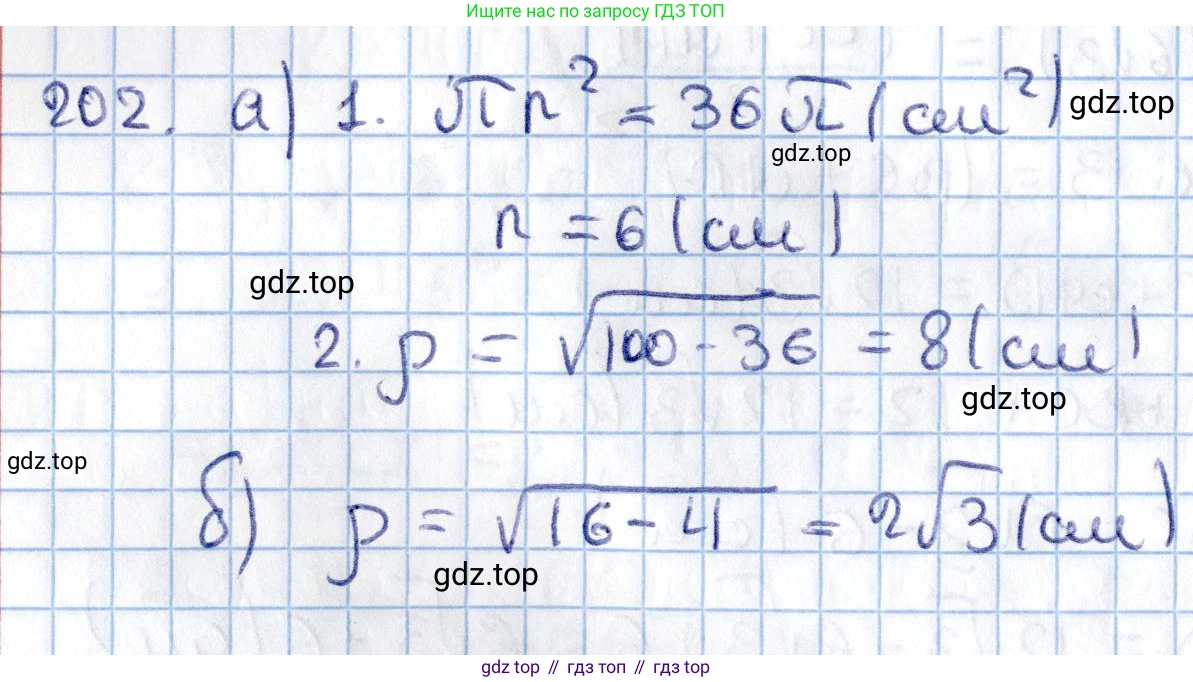 Ищите нас по запросу ГДЗ ТОП
202. а) 1. πr² = 36π (см²) gdz.top
gdz.top
r = 6 (см)
gdz.top
2. ρ = √(100 - 36) = 8 (см)
gdz.top
gdz.top
б) ρ = √(16 - 4) = 2√3 (см)
gdz.top
gdz top // гдз топ // гдз top